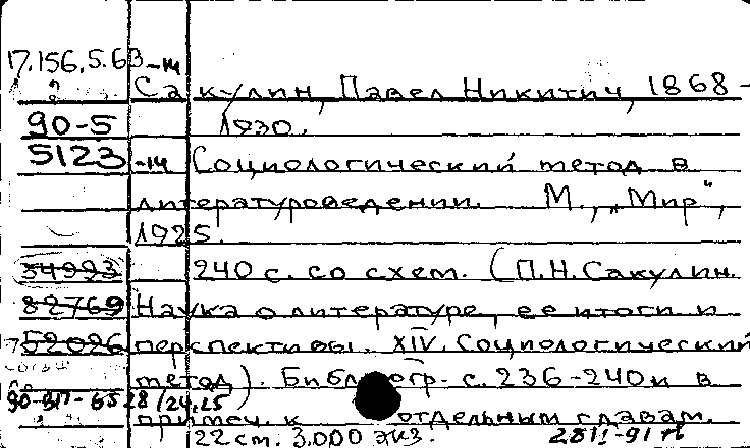 17.156.5.63-14
Сакулин, Павел Никитич, 1868-
90-5 1930.
5123-14 Социологический метод в
литературоведении. М., „Мир",
1925.
34993 240 с. со схем. (П.Н.Сакулин.
82769 Наука о литературе, ее итоги и
52026 перспективы. XIV. Социологический
метод). Библиогр. с. 236-240 и в
примеч. к отдельным главам.
22 см. 3.000 экз.